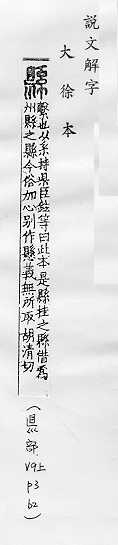 說文解字
大徐本
縣
繫也从系持県臣鉉等曰此本是縣挂之縣借爲
州縣之縣今俗加心別作懸義無所取胡涓切
(県部 V9上 p3 b2)